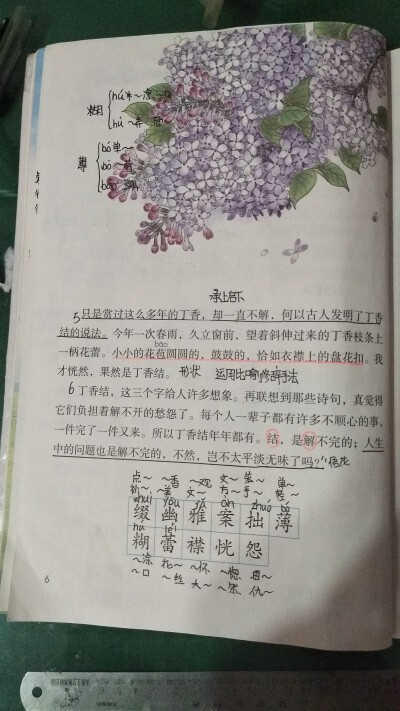 糊
hú
hù
薄
bó 单~
bò ~
báo
承上启下
5 只是赏过这么多年的丁香,却一直不解,何以古人发明了丁香
结的说法。今年一次春雨,久立窗前,望着斜伸过来的丁香枝条上
一柄花蕾。小小的花苞圆圆的,鼓鼓的,恰如衣襟上的盘花扣。我
bāo
才恍然,果然是丁香结。 形状 运用比喻修辞手法
6 丁香结,这三个字给人许多想象。再联想到那些诗句,真觉得
它们负担着解不开的愁怨了。每个人一辈子都有许多不顺心的事,
一件完了一件又来。所以丁香结年年都有。结,是解不完的;人生
中的问题也是解不完的,不然,岂不太平淡无味了吗?
点~ ~香 ~观 文~ 笨~ 单~
~美 文~ 方~ ~手
zhuì yōu yǎ àn zhuō bó
缀 幽 雅 案 拙 薄
hú lěi
糊 蕾 襟 恍 怨
~涂 ~怀 ~惚
~口 仇~
6